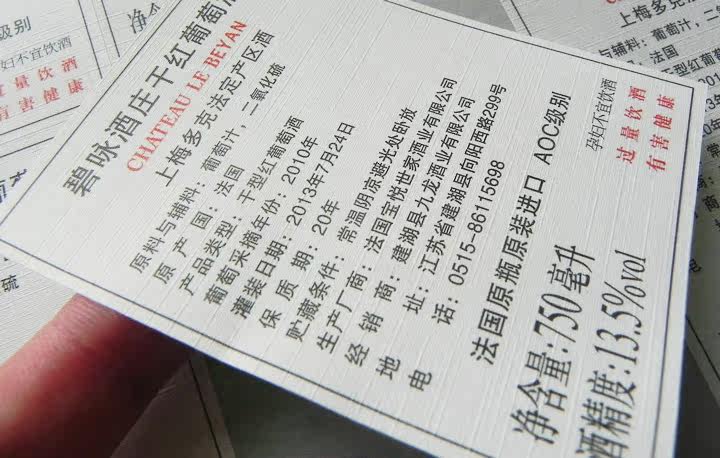 碧咏酒庄干红葡萄
CHATEAU LE BEYAN
上梅多克法定产区酒
原料与辅料：葡萄汁，二氧化硫
原产国：法国
产品类型：干型红葡萄酒
葡萄采摘年份：2010年
灌装日期：2013年7月24日
保质期：20年
贮藏条件：常温阴凉避光处卧放
生产厂商：法国宝悦世家酒业有限公司
经销商：建湖县九龙酒业有限公司
地址：江苏省建湖县向阳西路299号
电话：0515-86115698
法国原瓶原装进口 AOC级别
孕妇不宜饮酒
过量饮酒
有害健康
净含量:750毫升
酒精度:13.5%vol
级别
孕妇不宜饮酒
过量饮酒
有害健康
净含
上梅多克
与辅料：葡萄汁，
法国